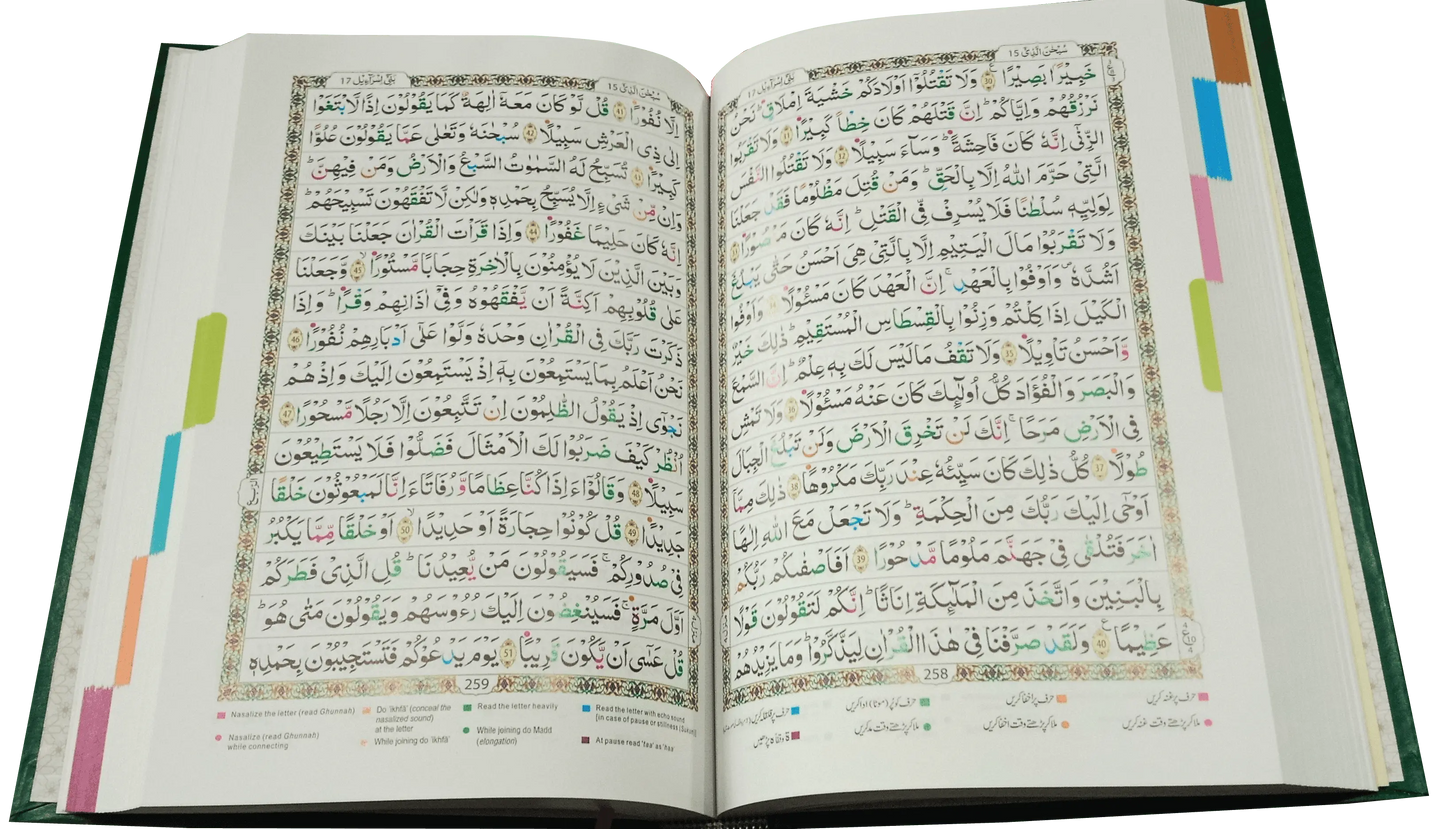 سُبْحٰنَ الَّذِیْۤ 15
بَنِیْۤ اِسْرَآءِیْل 17
خَبِیْرًۢا بَصِیْرًا ﴿30﴾ وَلَا تَقْتُلُوْۤا اَوْلَادَكُمْ خَشْیَةَ اِمْلَاقٍ ؕ نَحْنُ
نَرْزُقُهُمْ وَاِیَّاكُمْ ؕ اِنَّ قَتْلَهُمْ كَانَ خِطْاً كَبِیْرًا ﴿31﴾ وَلَا تَقْرَبُوا
الزِّنٰۤی اِنَّهٗ كَانَ فَاحِشَةً ؕ وَسَآءَ سَبِیْلًا ﴿32﴾ وَلَا تَقْتُلُوا النَّفْسَ
الَّتِیْ حَرَّمَ اللّٰهُ اِلَّا بِالْحَقِّ ؕ وَمَنْ قُتِلَ مَظْلُوْمًا فَقَدْ جَعَلْنَا
لِوَلِیِّهٖ سُلْطٰنًا فَلَا یُسْرِفْ فِّی الْقَتْلِ ؕ اِنَّهٗ كَانَ مَنْصُوْرًا ﴿33﴾
وَلَا تَقْرَبُوْا مَالَ الْیَتِیْمِ اِلَّا بِالَّتِیْ هِیَ اَحْسَنُ حَتّٰی یَبْلُغَ
اَشُدَّهٗ ۪ وَاَوْفُوْا بِالْعَهْدِ ۚ اِنَّ الْعَهْدَ كَانَ مَسْـُٔوْلًا ﴿34﴾ وَاَوْفُوا
الْكَیْلَ اِذَا كِلْتُمْ وَزِنُوْا بِالْقِسْطَاسِ الْمُسْتَقِیْمِ ؕ ذٰلِكَ خَیْرٌ
وَّاَحْسَنُ تَاْوِیْلًا ﴿35﴾ وَلَا تَقْفُ مَا لَیْسَ لَكَ بِهٖ عِلْمٌ ؕ اِنَّ السَّمْعَ
وَالْبَصَرَ وَالْفُؤَادَ كُلُّ اُولٰٓئِكَ كَانَ عَنْهُ مَسْـُٔوْلًا ﴿36﴾ وَلَا تَمْشِ
فِی الْاَرْضِ مَرَحًا ۚ اِنَّكَ لَنْ تَخْرِقَ الْاَرْضَ وَلَنْ تَبْلُغَ الْجِبَالَ
طُوْلًا ﴿37﴾ كُلُّ ذٰلِكَ كَانَ سَیِّئُهٗ عِنْدَ رَبِّكَ مَكْرُوْهًا ﴿38﴾ ذٰلِكَ مِمَّاۤ
اَوْحٰۤی اِلَیْكَ رَبُّكَ مِنَ الْحِكْمَةِ ؕ وَلَا تَجْعَلْ مَعَ اللّٰهِ اِلٰهًا
اٰخَرَ فَتُلْقٰی فِیْ جَهَنَّمَ مَلُوْمًا مَّدْحُوْرًا ﴿39﴾ اَفَاَصْفٰىكُمْ رَبُّكُمْ
بِالْبَنِیْنَ وَاتَّخَذَ مِنَ الْمَلٰٓئِكَةِ اِنَاثًا ؕ اِنَّكُمْ لَتَقُوْلُوْنَ قَوْلًا
عَظِیْمًا ﴿40﴾ وَلَقَدْ صَرَّفْنَا فِیْ هٰذَا الْقُرْاٰنِ لِیَذَّكَّرُوْا ؕ وَمَا یَزِیْدُهُمْ
258
حرف پر غنہ کریں
حرف پر اخفا کریں
حرف کو پُر (موٹا) ادا کریں
حرف پر قلقلہ کریں
ملا کر پڑھتے وقت غنہ کریں
ملا کر پڑھتے وقت اخفا کریں
ملا کر پڑھتے وقت مد کریں
سُبْحٰنَ الَّذِیْۤ 15
بَنِیْۤ اِسْرَآءِیْل 17
اِلَّا نُفُوْرًا ﴿41﴾ قُلْ لَّوْ كَانَ مَعَهٗۤ اٰلِهَةٌ كَمَا یَقُوْلُوْنَ اِذًا لَّابْتَغَوْا
اِلٰی ذِی الْعَرْشِ سَبِیْلًا ﴿42﴾ سُبْحٰنَهٗ وَتَعٰلٰی عَمَّا یَقُوْلُوْنَ عُلُوًّا
كَبِیْرًا ﴿43﴾ تُسَبِّحُ لَهُ السَّمٰوٰتُ السَّبْعُ وَالْاَرْضُ وَمَنْ فِیْهِنَّ ؕ
وَاِنْ مِّنْ شَیْءٍ اِلَّا یُسَبِّحُ بِحَمْدِهٖ وَلٰكِنْ لَّا تَفْقَهُوْنَ تَسْبِیْحَهُمْ ؕ
اِنَّهٗ كَانَ حَلِیْمًا غَفُوْرًا ﴿44﴾ وَاِذَا قَرَاْتَ الْقُرْاٰنَ جَعَلْنَا بَیْنَكَ
وَبَیْنَ الَّذِیْنَ لَا یُؤْمِنُوْنَ بِالْاٰخِرَةِ حِجَابًا مَّسْتُوْرًا ﴿45﴾ وَّجَعَلْنَا
عَلٰی قُلُوْبِهِمْ اَكِنَّةً اَنْ یَّفْقَهُوْهُ وَفِیْۤ اٰذَانِهِمْ وَقْرًا ؕ وَاِذَا
ذَكَرْتَ رَبَّكَ فِی الْقُرْاٰنِ وَحْدَهٗ وَلَّوْا عَلٰۤی اَدْبَارِهِمْ نُفُوْرًا ﴿46﴾
نَحْنُ اَعْلَمُ بِمَا یَسْتَمِعُوْنَ بِهٖۤ اِذْ یَسْتَمِعُوْنَ اِلَیْكَ وَاِذْ هُمْ
نَجْوٰۤی اِذْ یَقُوْلُ الظّٰلِمُوْنَ اِنْ تَتَّبِعُوْنَ اِلَّا رَجُلًا مَّسْحُوْرًا ﴿47﴾
اُنْظُرْ كَیْفَ ضَرَبُوْا لَكَ الْاَمْثَالَ فَضَلُّوْا فَلَا یَسْتَطِیْعُوْنَ
سَبِیْلًا ﴿48﴾ وَقَالُوْۤا ءَاِذَا كُنَّا عِظَامًا وَّرُفَاتًا ءَاِنَّا لَمَبْعُوْثُوْنَ خَلْقًا
جَدِیْدًا ﴿49﴾ قُلْ كُوْنُوْا حِجَارَةً اَوْ حَدِیْدًا ﴿50﴾ اَوْ خَلْقًا مِّمَّا یَكْبُرُ
فِیْ صُدُوْرِكُمْ ۚ فَسَیَقُوْلُوْنَ مَنْ یُّعِیْدُنَا ؕ قُلِ الَّذِیْ فَطَرَكُمْ
اَوَّلَ مَرَّةٍ ۚ فَسَیُنْغِضُوْنَ اِلَیْكَ رُءُوْسَهُمْ وَیَقُوْلُوْنَ مَتٰی هُوَ ؕ
قُلْ عَسٰۤی اَنْ یَّكُوْنَ قَرِیْبًا ﴿51﴾ یَوْمَ یَدْعُوْكُمْ فَتَسْتَجِیْبُوْنَ بِحَمْدِهٖ
259
Nasalize the letter (read Ghunnah)
Do 'ikhfâ' (conceal the
nasalized sound)
at the letter
Read the letter heavily
Read the letter with echo sound
(in case of pause or stillness (Sukun))
Nasalize (read Ghunnah)
while connecting
While joining do 'ikhfâ'
While joining do Madd
(elongation)
At pause read 'taa' as 'haa'